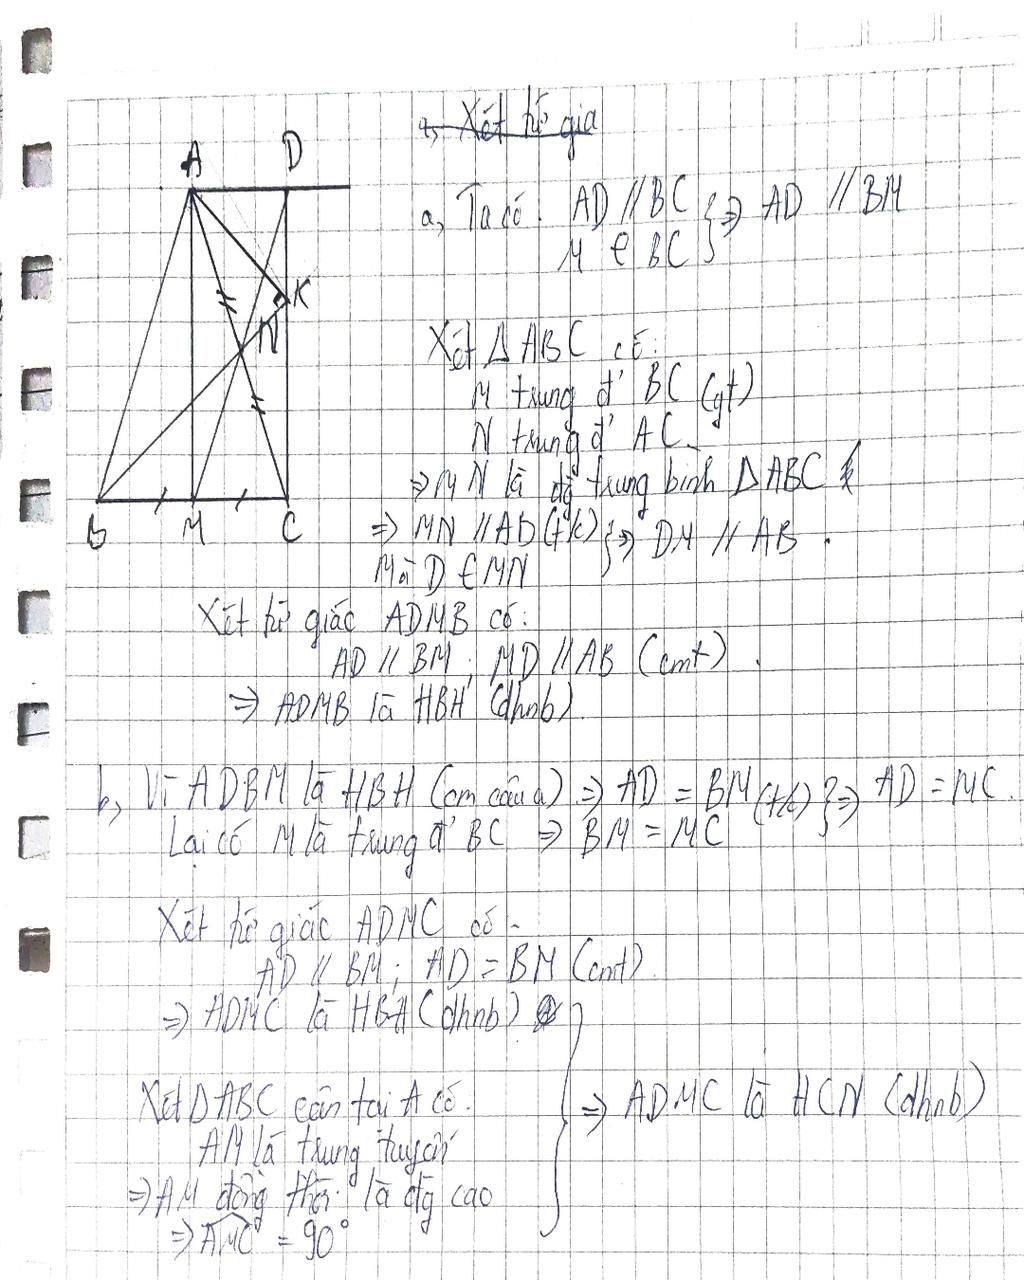 A D
K
N
B M C
a, Xét tứ giá
a, Ta có. AD // BC } ⇒ AD // BM
M ∈ BC
Xét Δ ABC có:
M trung đ' BC (gt)
N trung đ' AC.
⇒ MN là đg trung bình Δ ABC
⇒ MN // AB (t/c) } ⇒ DM // AB.
Mà D ∈ MN
Xét tứ giác ADMB có:
AD // BM; MD // AB (cmt).
⇒ ADMB là HBH (dhnb).
b, Vì ADBM là HBH (cm câu a) ⇒ AD = BM (t/c) } ⇒ AD = MC.
Lại có M là trung đ' BC ⇒ BM = MC
Xét tứ giác ADMC có.
AD // BM; AD = BM (cmt).
⇒ ADMC là HBH (dhnb)
Xét Δ ABC cân tại A có.
AM là trung tuyến
⇒ AM đồng thời là đg cao
⇒ AMC = 90°
} ⇒ ADMC là HCN (dhnb)